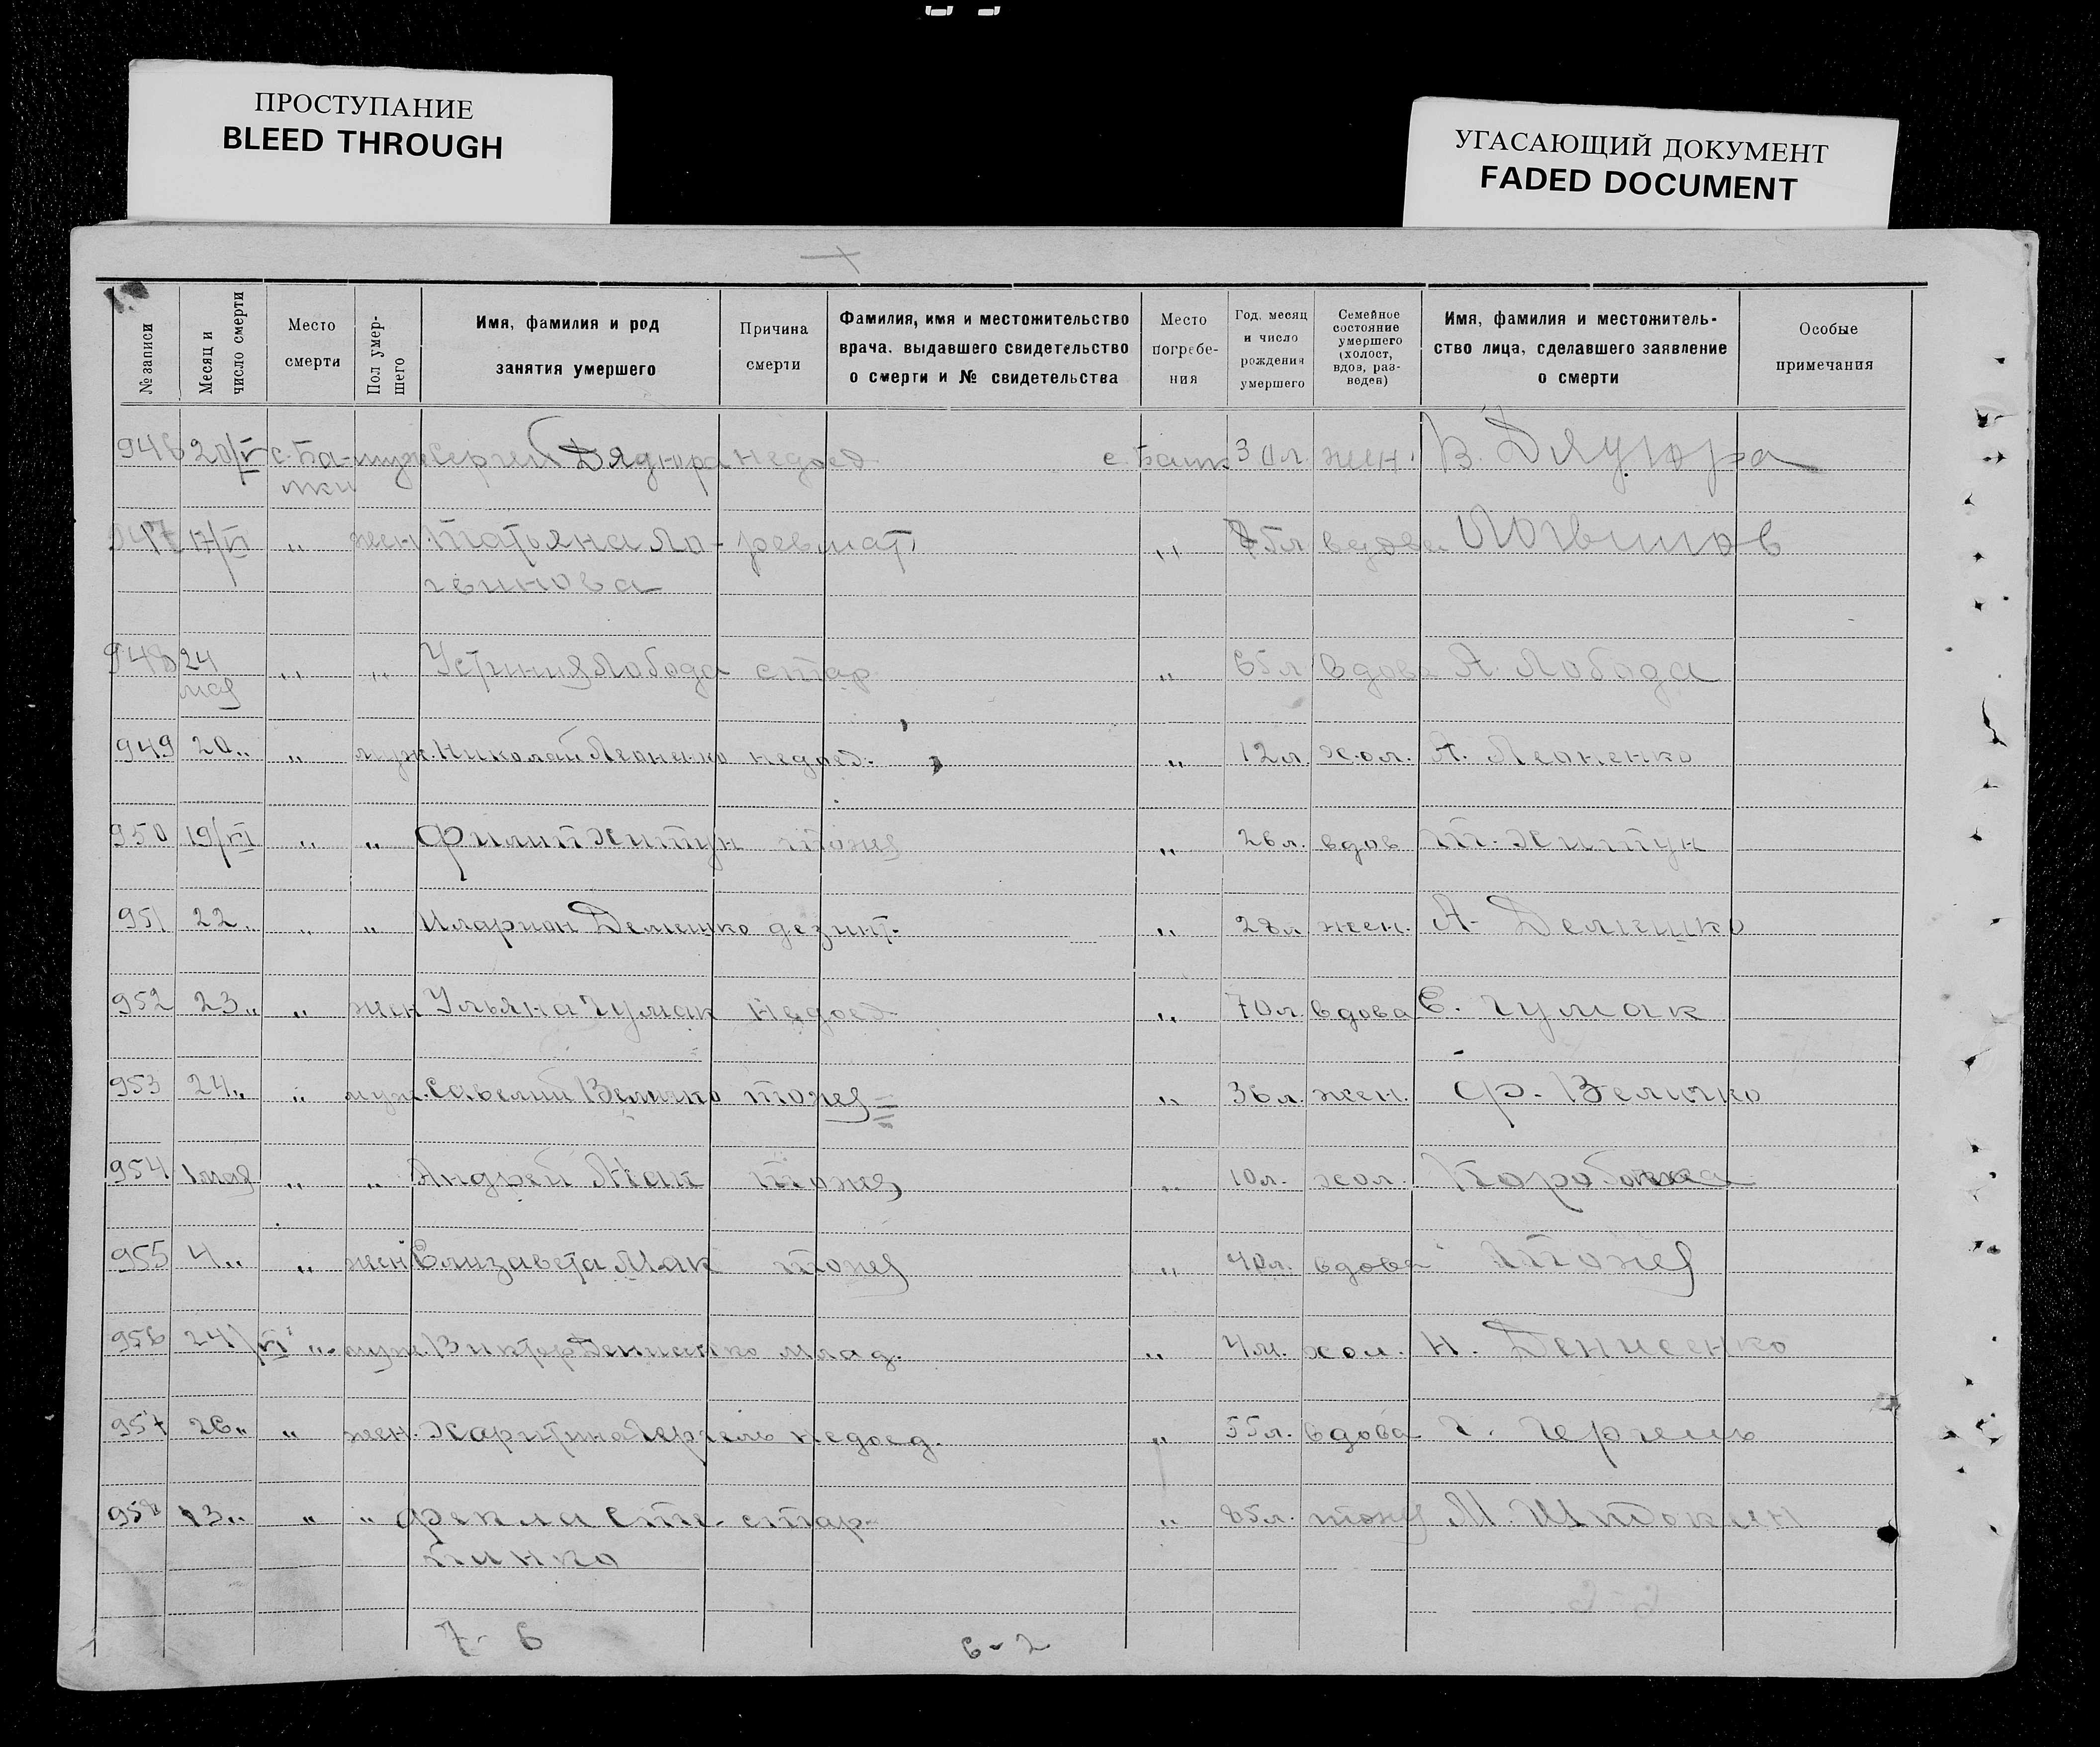 ПРОСТУПАНИЕ
BLEED THROUGH
УГАСАЮЩИЙ ДОКУМЕНТ
FADED DOCUMENT
№ записи
Месяц и
число смерти
Место
смерти
Пол умер-
шего
Имя, фамилия и род
занятия умершего
Причина
смерти
Фамилия, имя и местожительство
врача, выдавшего свидетельство
о смерти и № свидетельства
Место
погребе-
ния
Год, месяц
и число
рождения
умершего
Семейное
состояние
умершего
(холост,
вдов, раз-
веден)
Имя, фамилия и местожитель-
ство лица, сделавшего заявление
о смерти
Особые
примечания
946 20/V с. Ба- муж Сергей недоед с. 30 л. жен. В.
947 17/VI " жен Татьяна Ло- ревмат. " 75 л вдова Логвинов
гвинова
948 24 " " Устиния Лобода стар " 65 л вдова А. Лобода
мая
949 20 " " муж. Николай Леоненко недоед. " 12 л. хол. А. Леоненко
950 19/VI " " Филип Хитун тоже " 26 л. вдов Т. Хитун
951 22 " " " Иларион Демешко дезинт. " 28 л жен. А. Демешко
952 23 " " жен Ульяна Чумак недоед " 70 л. вдова Е. Чумак
953 24 " " муж. Савелий Величко тоже " 36 л. жен. Ф. Величко
954 1 мая " " Андрей Мак тоже " 10 л. хол. Коробка
955 4 " " жен Елизавета Мак тоже " 40 л. вдова тоже
956 24/VI " муж. Виктор Денисенко млад. " 4 м. хол. Н. Денисенко
957 26 " " жен. Харитина недоед. " 55 л. вдова Г.
958 13 " " " Фекла Сте- стар. " 85 л. тоже М.
7 - 6
6 - 2